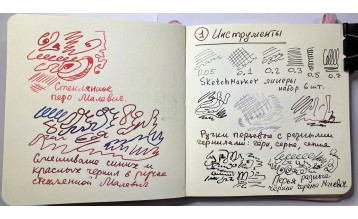 Стеклянное
перо Малевич.
Смешивание синих и
красных чернил в ручке
стеклянной Малевич
① Инструменты
0.05 0.1 0.2 0.3 0.5 0.7
SketchMarker линеры
набор 6 шт.
Ручки перьевые с разными
чернилами: серые, сепия
Перья разные
черная тушь